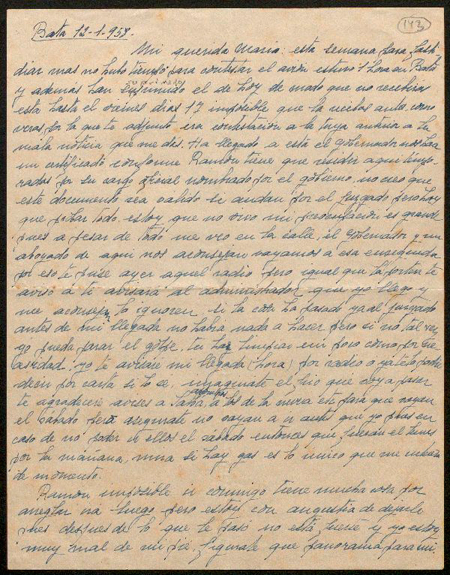 Bata 12-1-958. (143)
Mi querida Maria: esta semana para fasti
diar mas no hubo tiempo para contestar el avion estuvo 1 hora en Bata
y ademas han suprimido el de hoy de modo que no recibiras
esta hasta el dias 17 imposible que la recibas antes como
veras por la que te adjunto era contestación a la tuya a la
mala noticia que me das. Ha llegado a esta el gobernador
un certificado conforme Ramón tiene que residir aqui tempo
radas por su cargo oficial nombrado por el gobierno, no creo que
este documento sea valido te andan por el juzgado pero hay
que probar todo estoy que no vivo mi es grande
pues a pesar de todo me veo en la calle, el Gobernador y un
abogado de aqui nos aconsejan vayamos a esa enseguida
por eso te puse ayer aquel radio pero igual que la portera te
aviso a ti avisará al administrador que yo llego y
me aconsejan lo ignoren. Si la cosa ha pasado ya al juzgado
antes de mi llegada no habra nada a hacer pero si no, tal vez
yo pueda parar el golpe, tu haz limpiar mi piso como por
casualidad, yo te avisare mi llegada (hora) por radio o ya te lo
decir por carta si te es. el frio que voy a pasar
te agradeceré avises a los de la para que vayan
el Sabado pero asegurate no vayan a ir antes que yo pues en
caso de no poder ir ellos el sabado entonces que el lunes
por la mañana, mira si hay gas es lo unico que me
de momento.
Ramon imposible ir conmigo tiene mucha cosa por
arreglar luego pero estoy con angustia de dejarle
pues despues de lo que le paso no está fuerte y yo estoy
muy mal de mi pié, figurate que panorama para mi